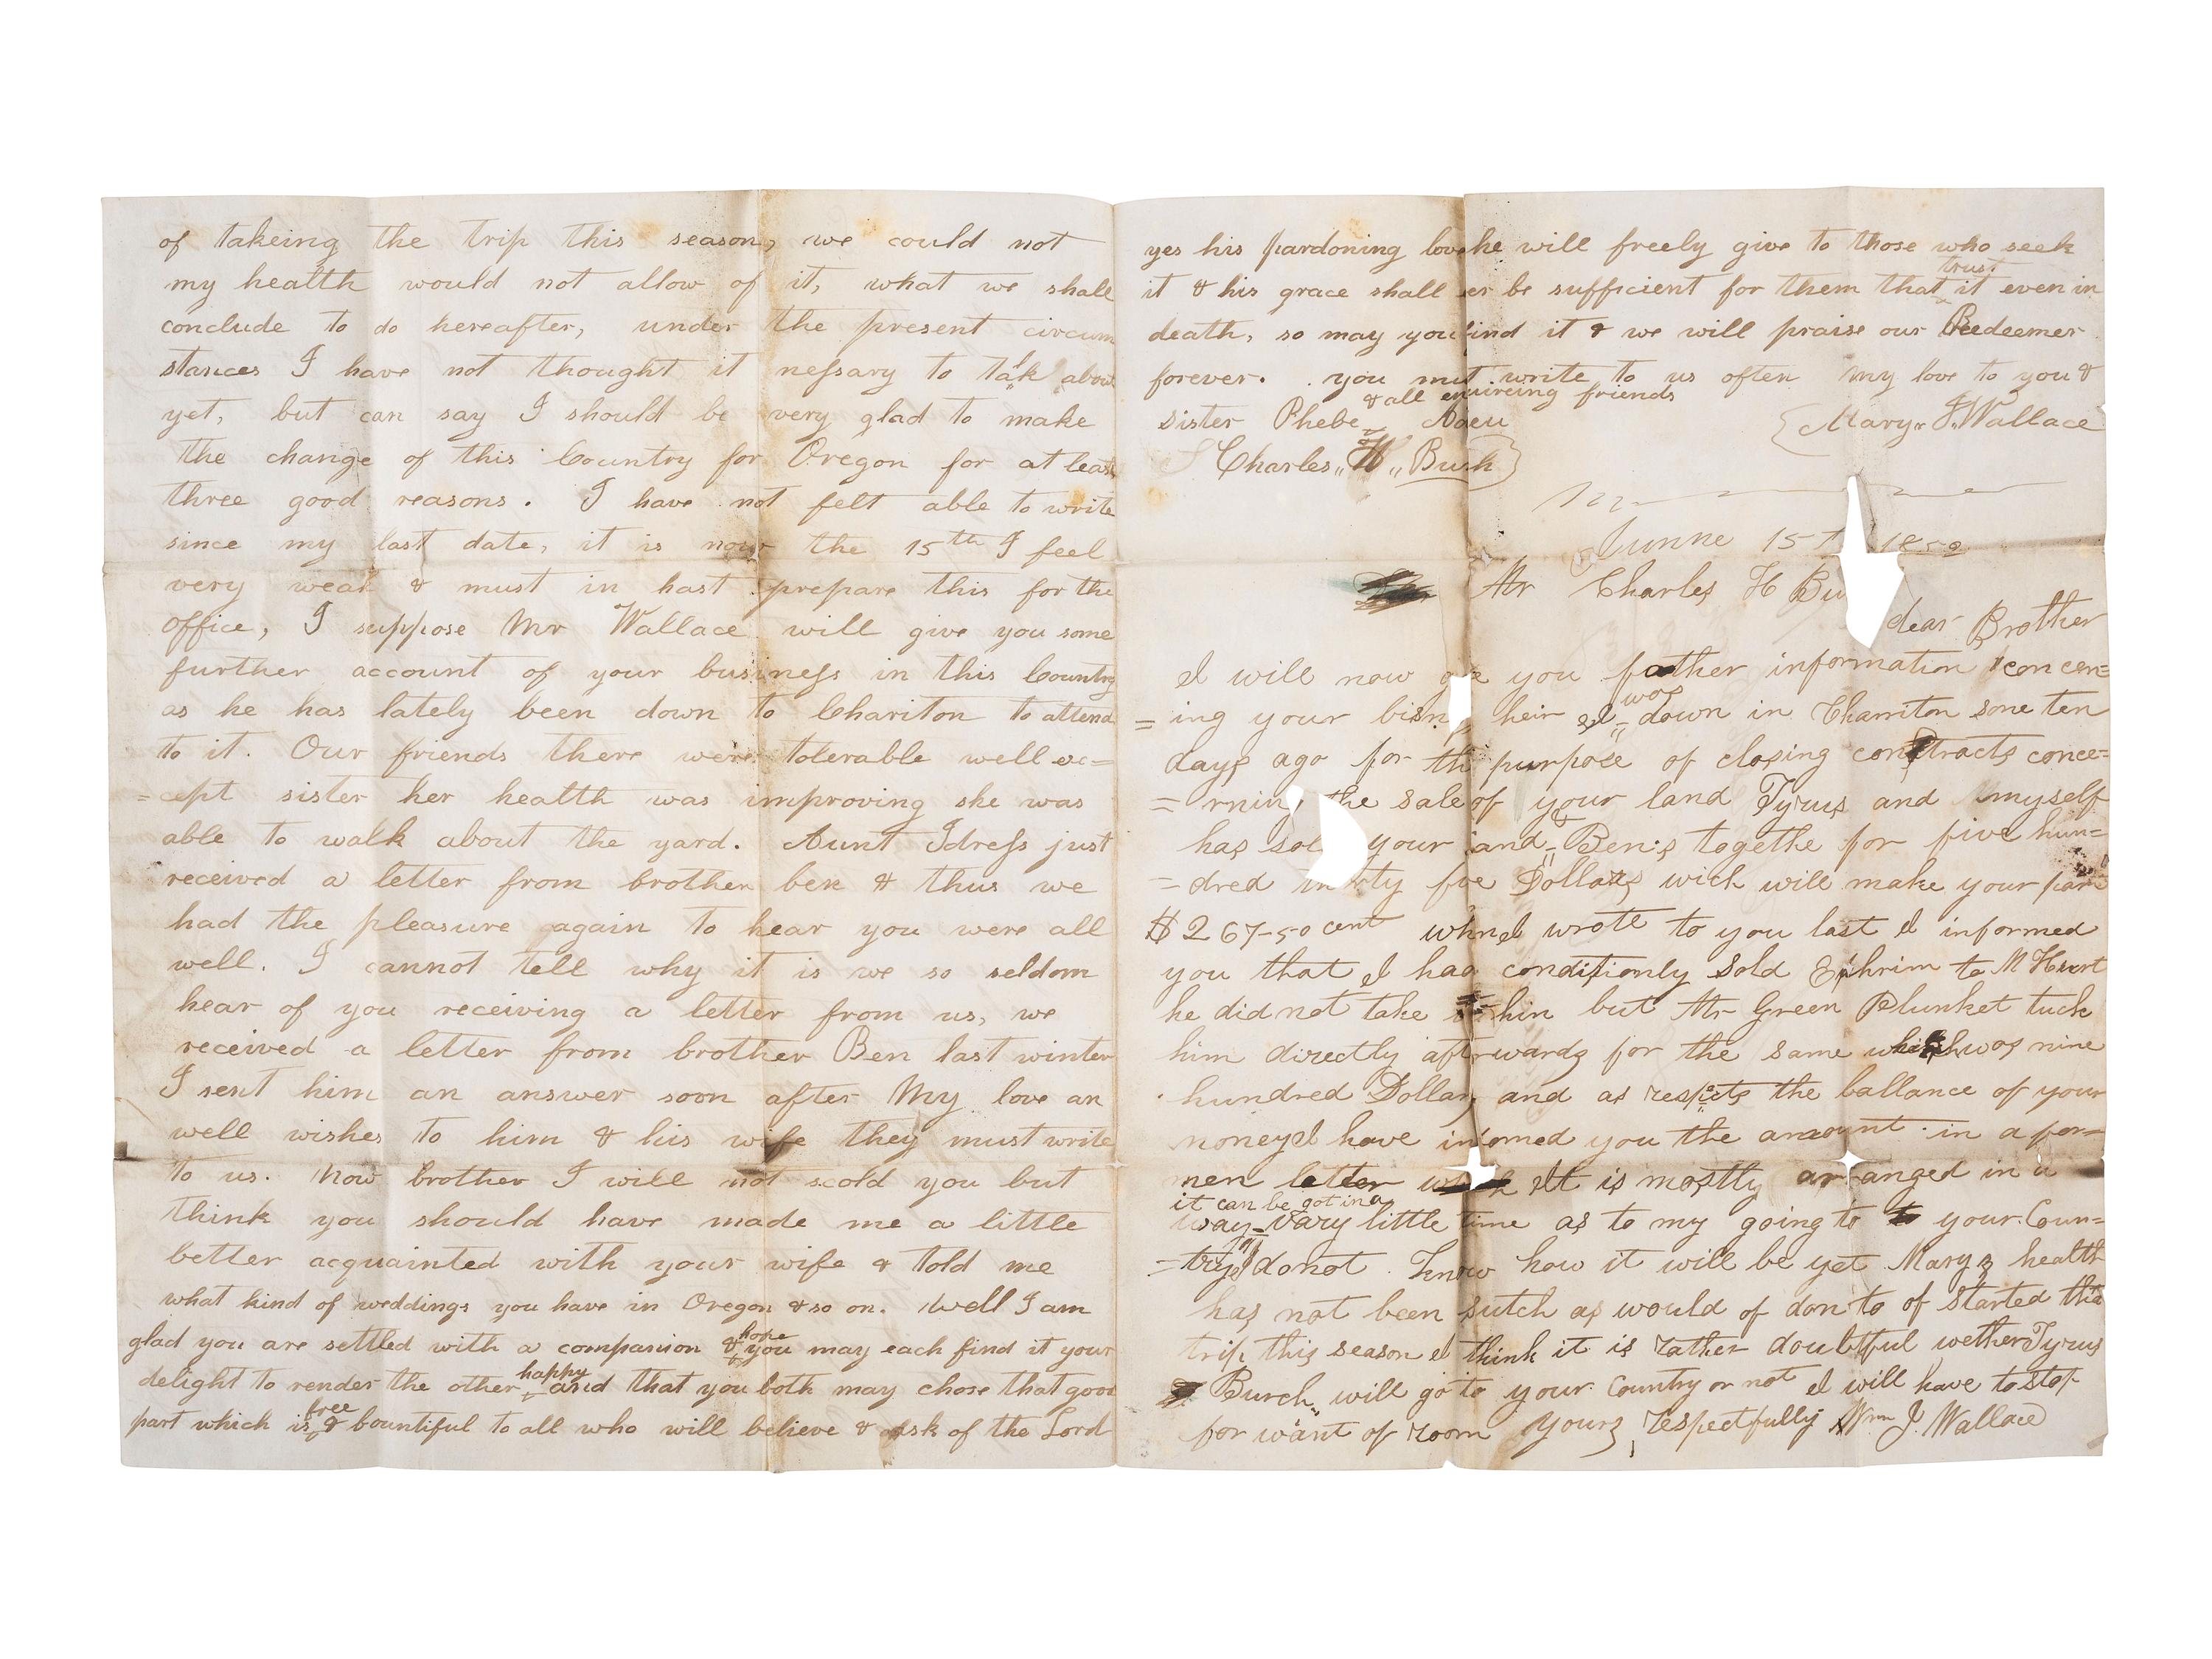 of takeing the trip this season, we could not
my health would not allow of it, what we shall
conclude to do hereafter, under the present circum
stances I have not thought it nessary to talk about
yet, but can say I should be very glad to make
the change of this Country for Oregon for at least
three good reasons. I have not felt able to write
since my last date, it is now the 15th I feel
very weak & must in hast prepare this for the
office, I suppose Mr Wallace will give you some
further account of your business in this Country
as he has lately been down to Chariton to attend
to it. Our friends there were tolerable well ex=
=cept sister her health was improving she was
able to walk about the yard. Aunt Idress just
received a letter from brother ben & thus we
had the pleasure again to hear you were all
well. I cannot tell why it is we so seldom
hear of you receiving a letter from us, we
received a letter from brother Ben last winter
I sent him an answer soon after My love an
well wishes to him & his wife they must write
to us. Now brother I will not scold you but
think you should have made me a little
better acquainted with your wife & told me
what kind of weddings you have in Oregon & so on. well I am
glad you are settled with a companion & hope you may each find it your
delight to render the other happy and that you both may chose that good
part which is free & bountiful to all who will believe & ask of the Lord
yes his pardoning love he will freely give to those who seek
it & his grace shall er be sufficient for them that trust it even in
death, so may you find it & we will praise our Redeemer
forever. you mut write to us often My love to you &
sister Phebe & all enquireing friends Adieu
{Mary J. Wallace
Charles "H" Burch}
Junne 15 1850
Mr Charles H Bu
dear Brother
I will now give you further information concern=
=ing your bisn heir I was down in Charriton some ten
days ago for th purpose of closing contracts conce=
=rning the sale of your land Tyrus and myself
has sol your and & Ben's togethe for five hun=
=dred thirty five Dollars wich will make your part
$267-50 cent when I wrote to you last I informed
you that I had conditionly sold Ephrim to M Hurt
he did not take him but Mr Green Plunket tuck
him directly afterwards for the same which was nine
hundred Dollars and as respects the ballance of your
money I have informed you the amount in a for=
mer letter It is mostly arranged in a
way it can be got in a vary little time as to my going to your Coun=
=try I do not Know how it will be yet Marys health
has not been sutch as would of don to of started the
trip this season I think it is rather doubtful wether Tyrus
Burch will go to your Country or not I will have to stop
for want of room Yours respectfully Wm J. Wallace